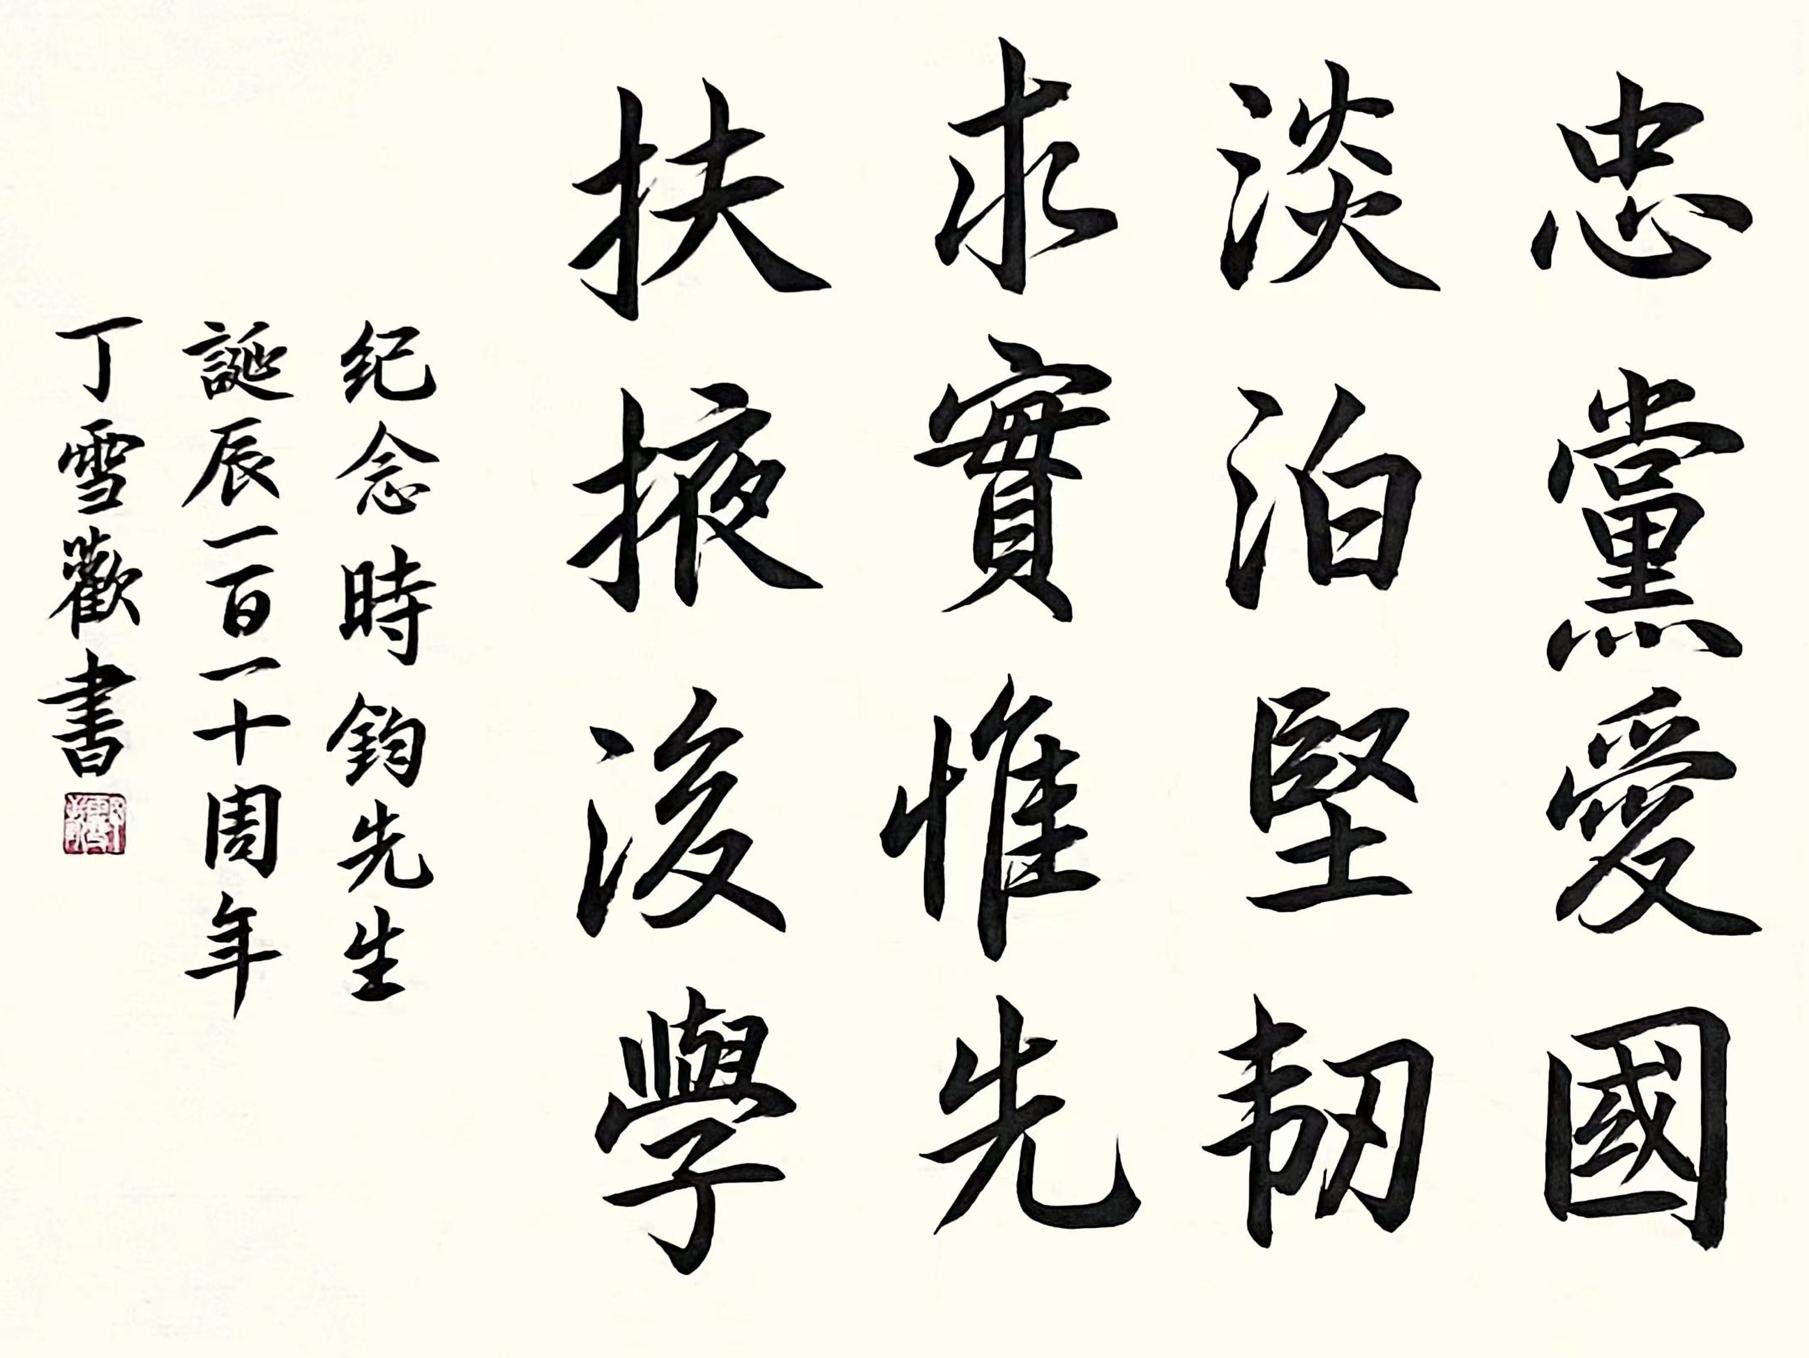 忠黨愛國
淡泊堅韧
求實惟先
扶掖後學
纪念時鈞先生
誕辰一百一十周年
丁雪歡書